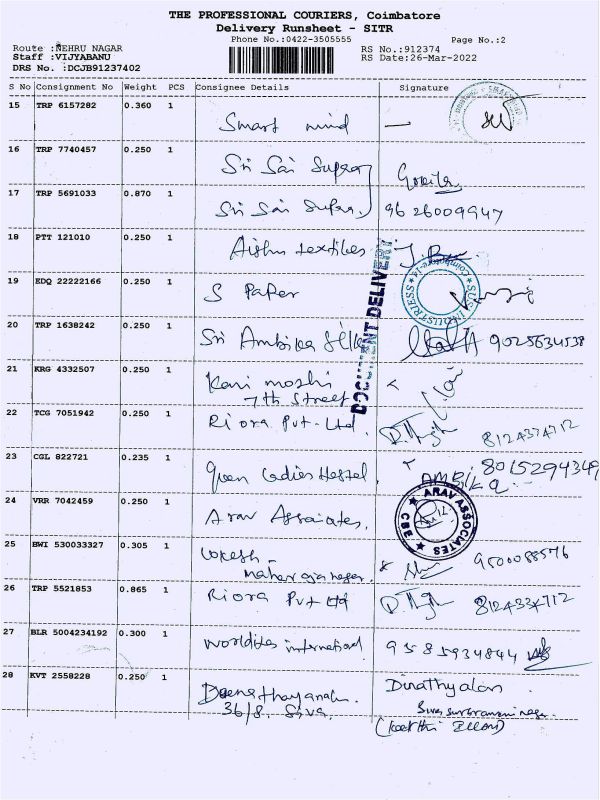 THE PROFESSIONAL COURIERS, Coimbatore
Delivery Runsheet - SITR
Phone No.:0422-3505555 Page No.:2
Route :NEHRU NAGAR RS No.:912374
Staff :VIJYABANU RS Date:26-Mar-2022
DRS No. :DCJB91237402
S No Consignment No Weight PCS Consignee Details Signature
15 TRP 6157282 0.360 1
Smart mind
16 TRP 7740457 0.250 1
Sri Sai Supra
17 TRP 5691033 0.870 1
Sri Sai Supra 9626009947
18 PTT 121010 0.250 1
Aishu textiles
DOCUMENT DELIVERY
19 EDQ 22222166 0.250 1
S Paper
SUSI INDUSTRIESS
20 TRP 1638242 0.250 1
Sri Ambika Silks 9025634538
21 KRG 4332507 0.250 1
Kani mozhi
7th Street
22 TCG 7051942 0.250 1
Riora Pvt-Ltd. 8124334712
23 CGL 822721 0.235 1
8015294349
Queen Ladies Hostel, AMBIKA
24 VRR 7042459 0.250 1
Arav Associates,
ARAV ASSOCIATES CBE
25 BWI 530033327 0.305 1
Lokesh - 9500088576
maharaja nagar.
26 TRP 5521853 0.865 1
Riora Pvt Ltd 8124334712
27 BLR 5004234192 0.300 1
Worldites international 9585934844
28 KVT 2558228 0.250 1
Deenathayanalan Dinathyalan
36/8, Siva